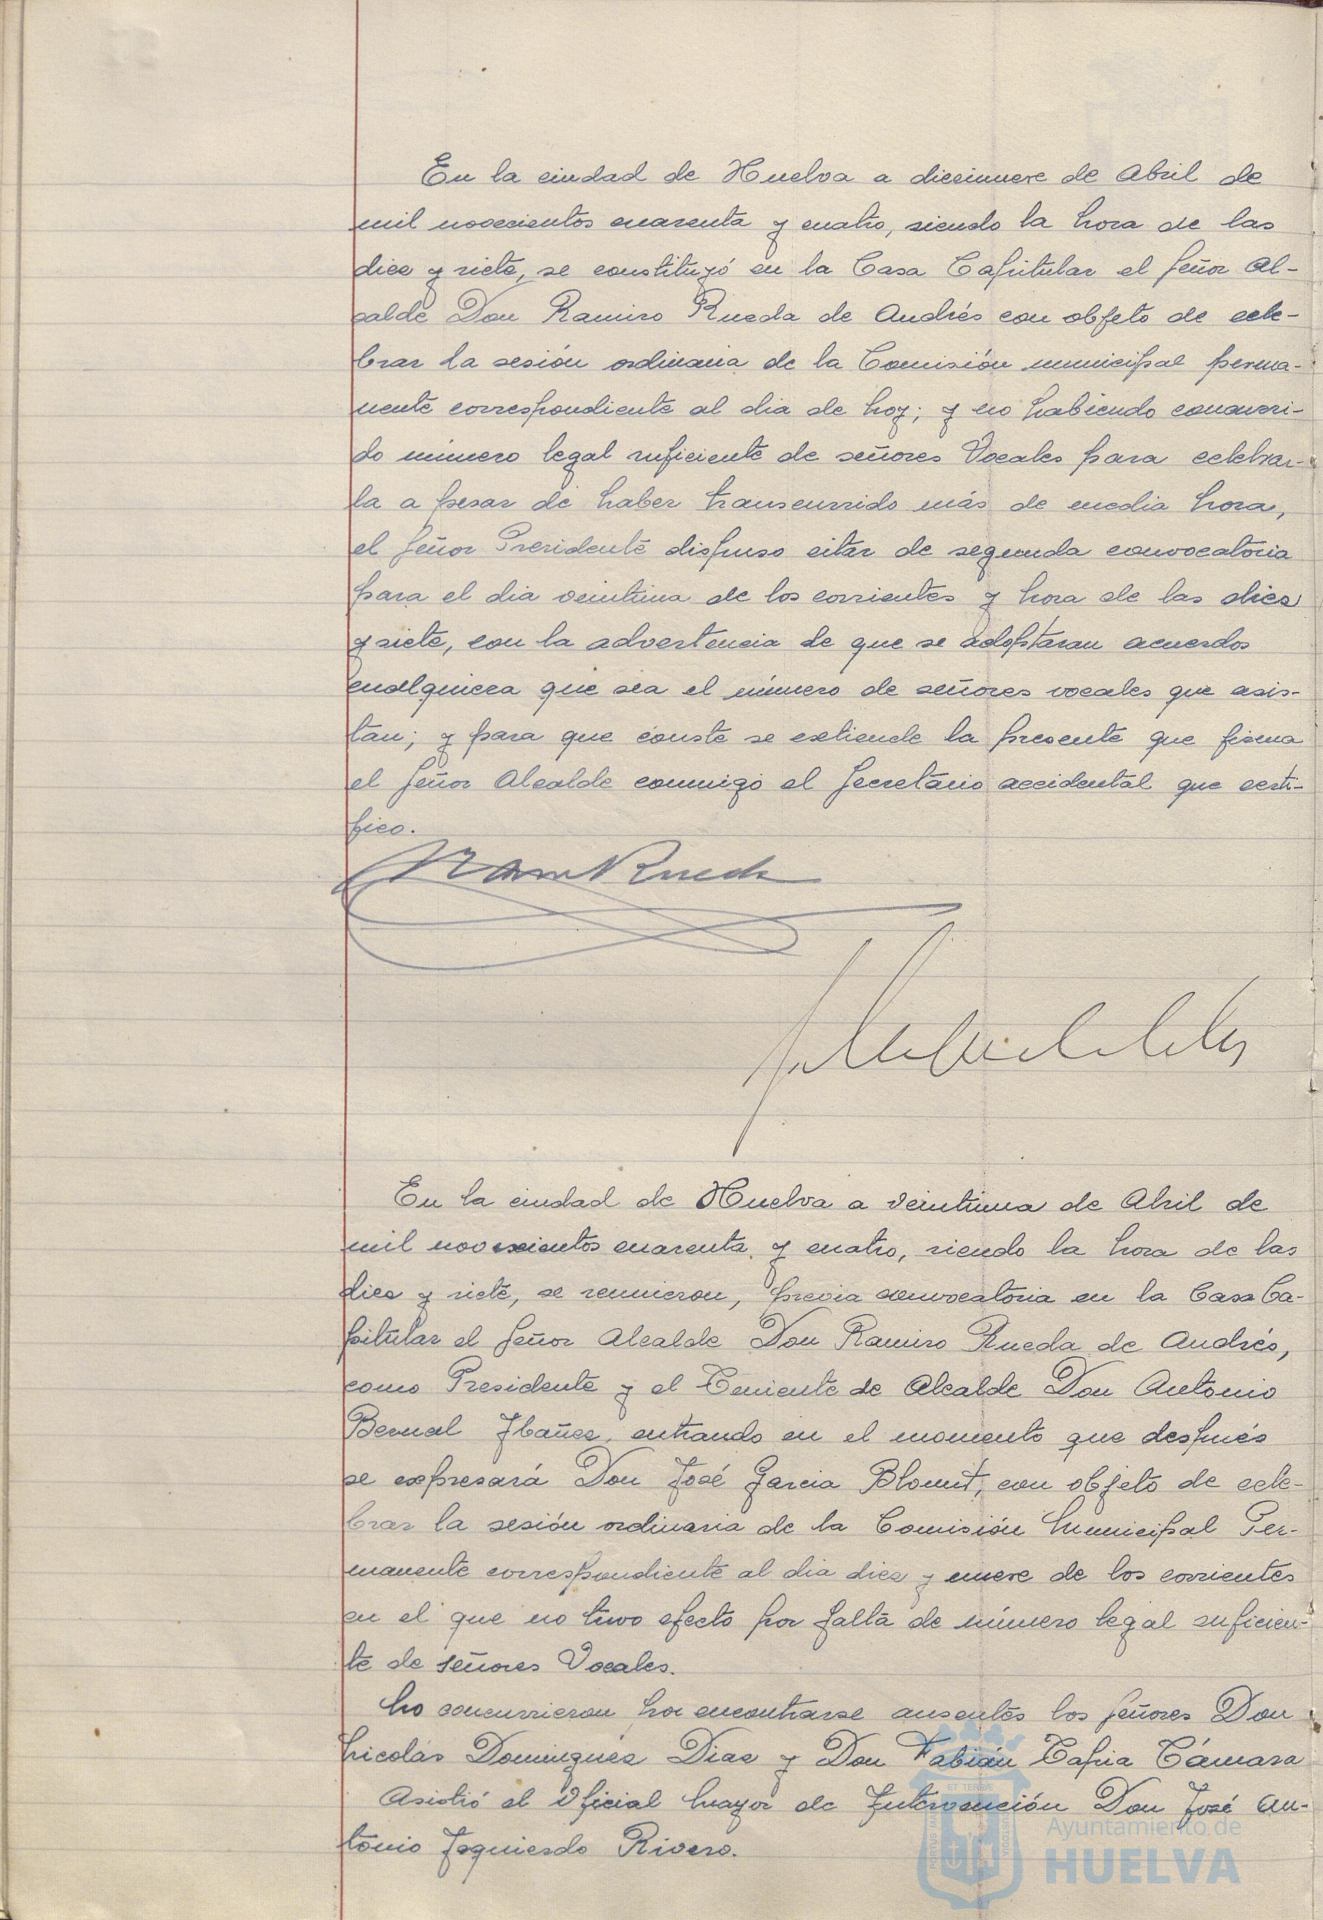 En la ciudad de Huelva a diecinueve de Abril de
mil novecientos cuarenta y cuatro, siendo la hora de las
diez y siete, se constituyó en la Casa Capitular el Señor Al-
calde Don Ramiro Rueda de Andrés con objeto de cele-
brar la sesión ordinaria de la Comisión municipal perma-
nente correspondiente al dia de hoy; y no habiendo concurri-
do número legal suficiente de señores Vocales para celebrar-
la a pesar de haber transcurrido más de media hora,
el Señor Presidente dispuso citar de segunda convocatoria
para el dia veintiuno de los corrientes y hora de las diez
y siete, con la advertencia de que se adoptaran acuerdos
cualquiera que sea el número de señores vocales que asis-
tan; y para que conste se extiende la presente que firma
el Señor Alcalde conmigo el Secretario accidental que certi-
fico.
Ram Rueda
En la ciudad de Huelva a veintiuno de Abril de
mil novecientos cuarenta y cuatro, siendo la hora de las
diez y siete, se reunieron, previa convocatoria en la Casa Ca-
pitular el Señor Alcalde Don Ramiro Rueda de Andrés,
como Presidente y el Teniente de Alcalde Don Antonio
Bernal Ibañez, entrando en el momento que después
se expresará Don José Garcia, con objeto de cele-
brar la sesión ordinaria de la Comisión Municipal Per-
manente correspondiente al dia diez y nueve de los corrientes
en el que no tuvo efecto por falta de número legal suficien-
te de señores Vocales.
No concurrieron por encontrarse ausentes los Señores Don
Nicolás Dominguez Diaz y Don Fabián Tapia Cámara
Asistió el Oficial Mayor de Intervención Don José An-
tonio Izquierdo Rivero.
Ayuntamiento de
HUELVA